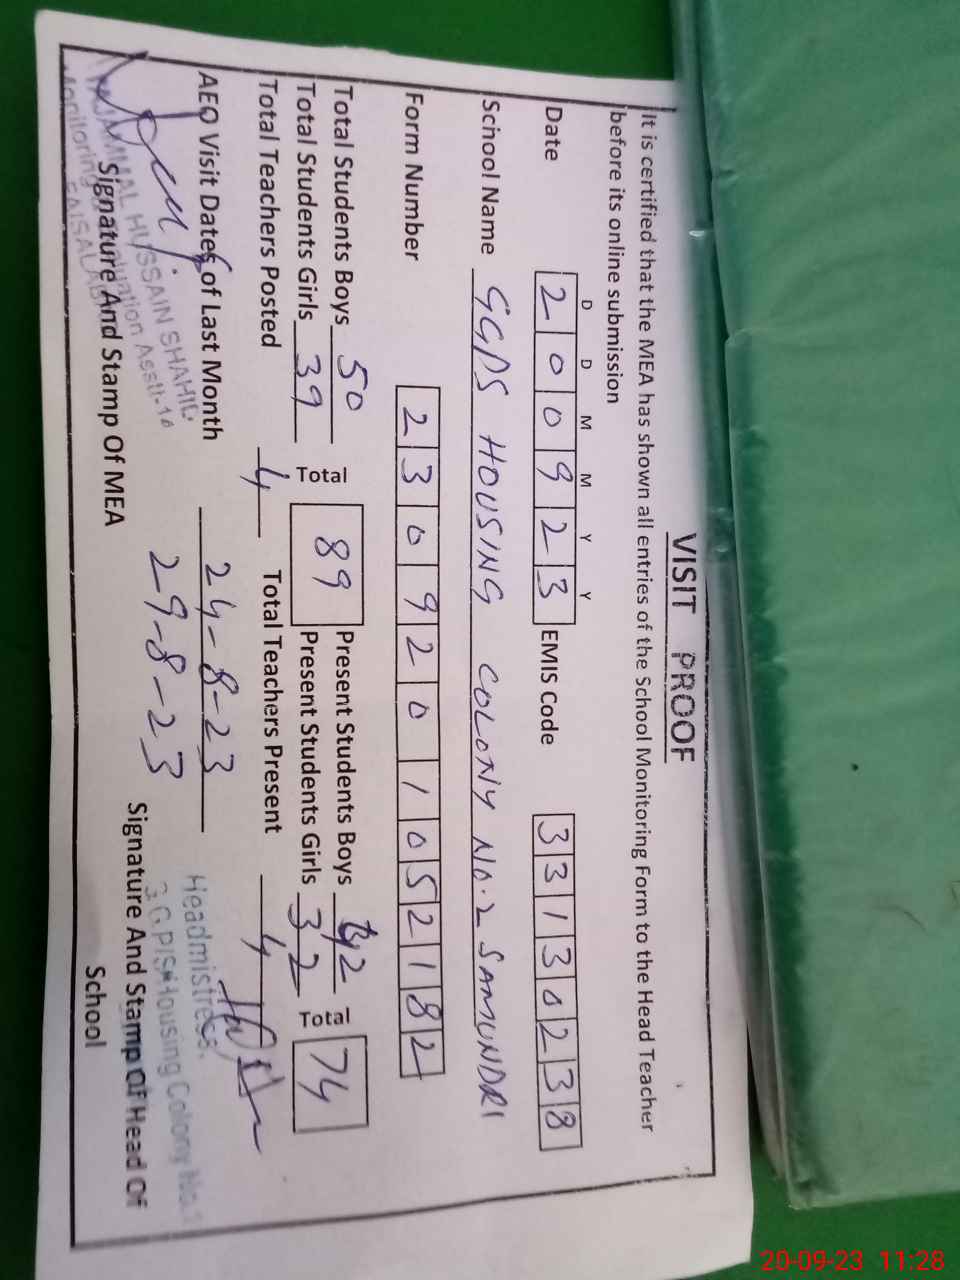 VISIT PROOF
It is certified that the MEA has shown all entries of the School Monitoring Form to the Head Teacher
before its online submission
D D M M Y Y
Date 2 0 0 9 2 3 EMIS Code 3 3 1 3 0 2 3 8
School Name GGPS HOUSING COLONY NO.2 SAMUNDRI
Form Number 2 3 0 9 2 0 1 0 5 2 1 8 2
Total Students Boys 50 Total 89 Present Students Boys 42 Total 74
Total Students Girls 39 Present Students Girls 32
Total Teachers Posted 4 Total Teachers Present 4
AEO Visit Dates of Last Month 24-8-23
29-8-23
HUSSAIN SHAHID
Monitoring
FAISALABAD
Signature And Stamp Of MEA
Headmistress,
Housing Colony
Signature And Stamp Of Head Of
School
20-09-23 11:28